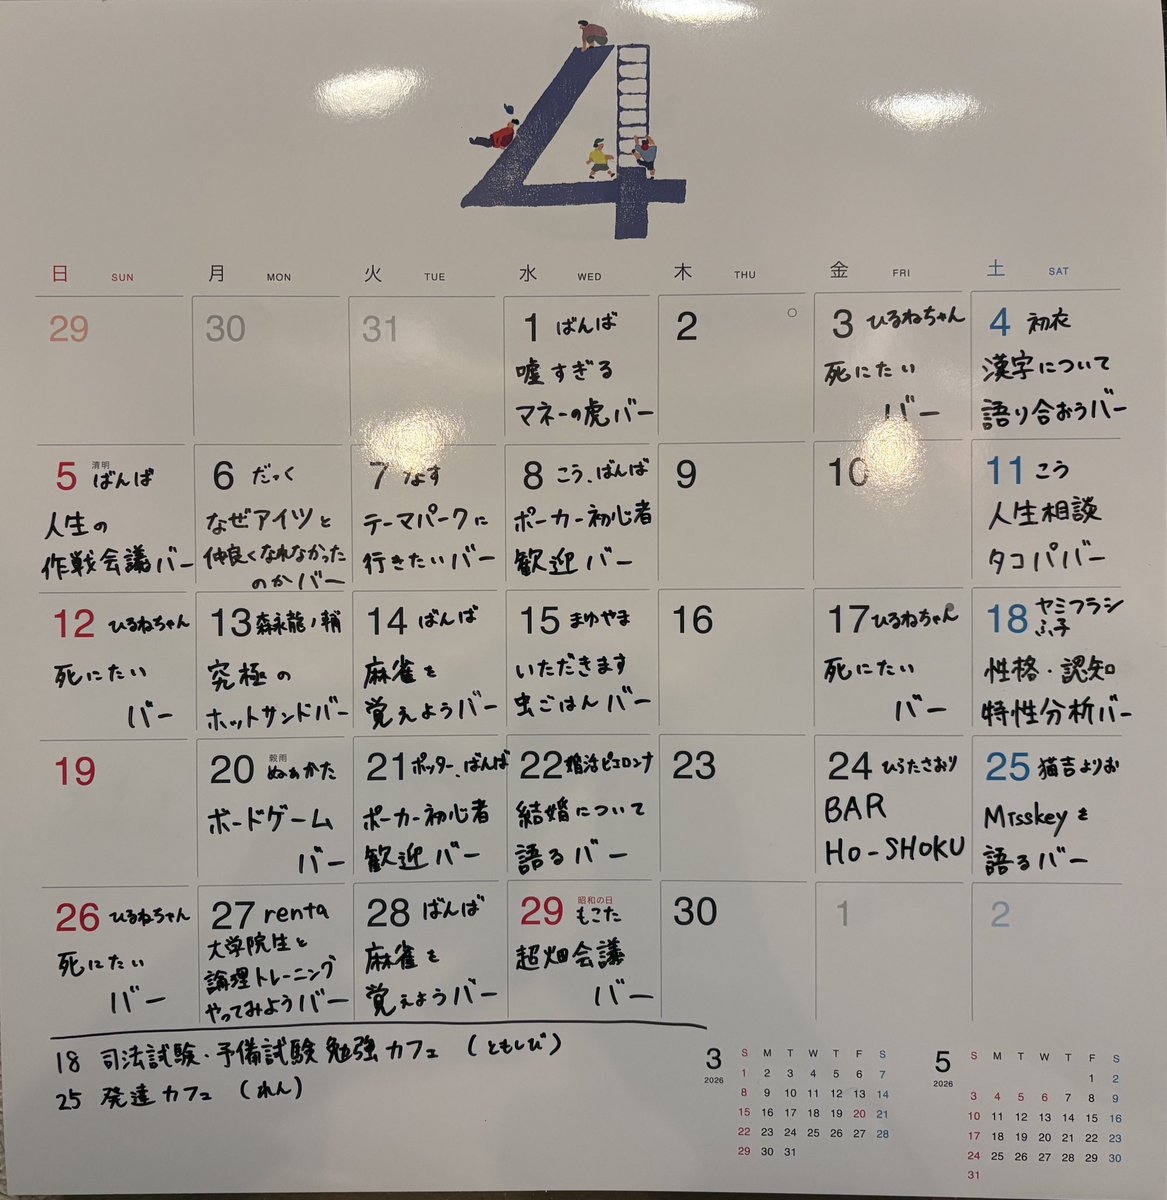 4
日 SUN 月 MON 火 TUE 水 WED 木 THU 金 FRI 土 SAT
29
30
31
1 ばんば
嘘すぎる
マネーの虎バー
2
3 ひるねちゃん
死にたい
バー
4 初衣
漢字について
語り合おうバー
5 清明 ばんば
人生の
作戦会議バー
6 だっく
なぜアイツと
仲良くなれなかった
のかバー
7 なす
テーマパークに
行きたいバー
8 こう、ばんば
ポーカー初心者
歓迎バー
9
10
11 こう
人生相談
タコパバー
12 ひるねちゃん
死にたい
バー
13 森永龍ノ輔
究極の
ホットサンドバー
14 ばんば
麻雀を
覚えようバー
15 まゆやま
いただきます
虫ごはんバー
16
17 ひるねちゃん
死にたい
バー
18 ヤミフラシ
ふ子
性格・認知
特性分析バー
19
20 穀雨 ぬぁかた
ボードゲーム
バー
21 ポッター、ばんば
ポーカー初心者
歓迎バー
22 婚活ピエロンナ
結婚について
語るバー
23
24 ひらたさおり
BAR
HO-SHOKU
25 猫吉よりお
Misskeyを
語るバー
26 ひるねちゃん
死にたい
バー
27 renta
大学院生と
論理トレーニング
やってみようバー
28 ばんば
麻雀を
覚えようバー
29 昭和の日
もこた
超畑会議
バー
30
1
2
18 司法試験・予備試験勉強カフェ (ともしび)
25 発達カフェ (れん)
3
2026
S M T W T F S
1 2 3 4 5 6 7
8 9 10 11 12 13 14
15 16 17 18 19 20 21
22 23 24 25 26 27 28
29 30 31
5
2026
S M T W T F S
1 2
3 4 5 6 7 8 9
10 11 12 13 14 15 16
17 18 19 20 21 22 23
24 25 26 27 28 29 30
31